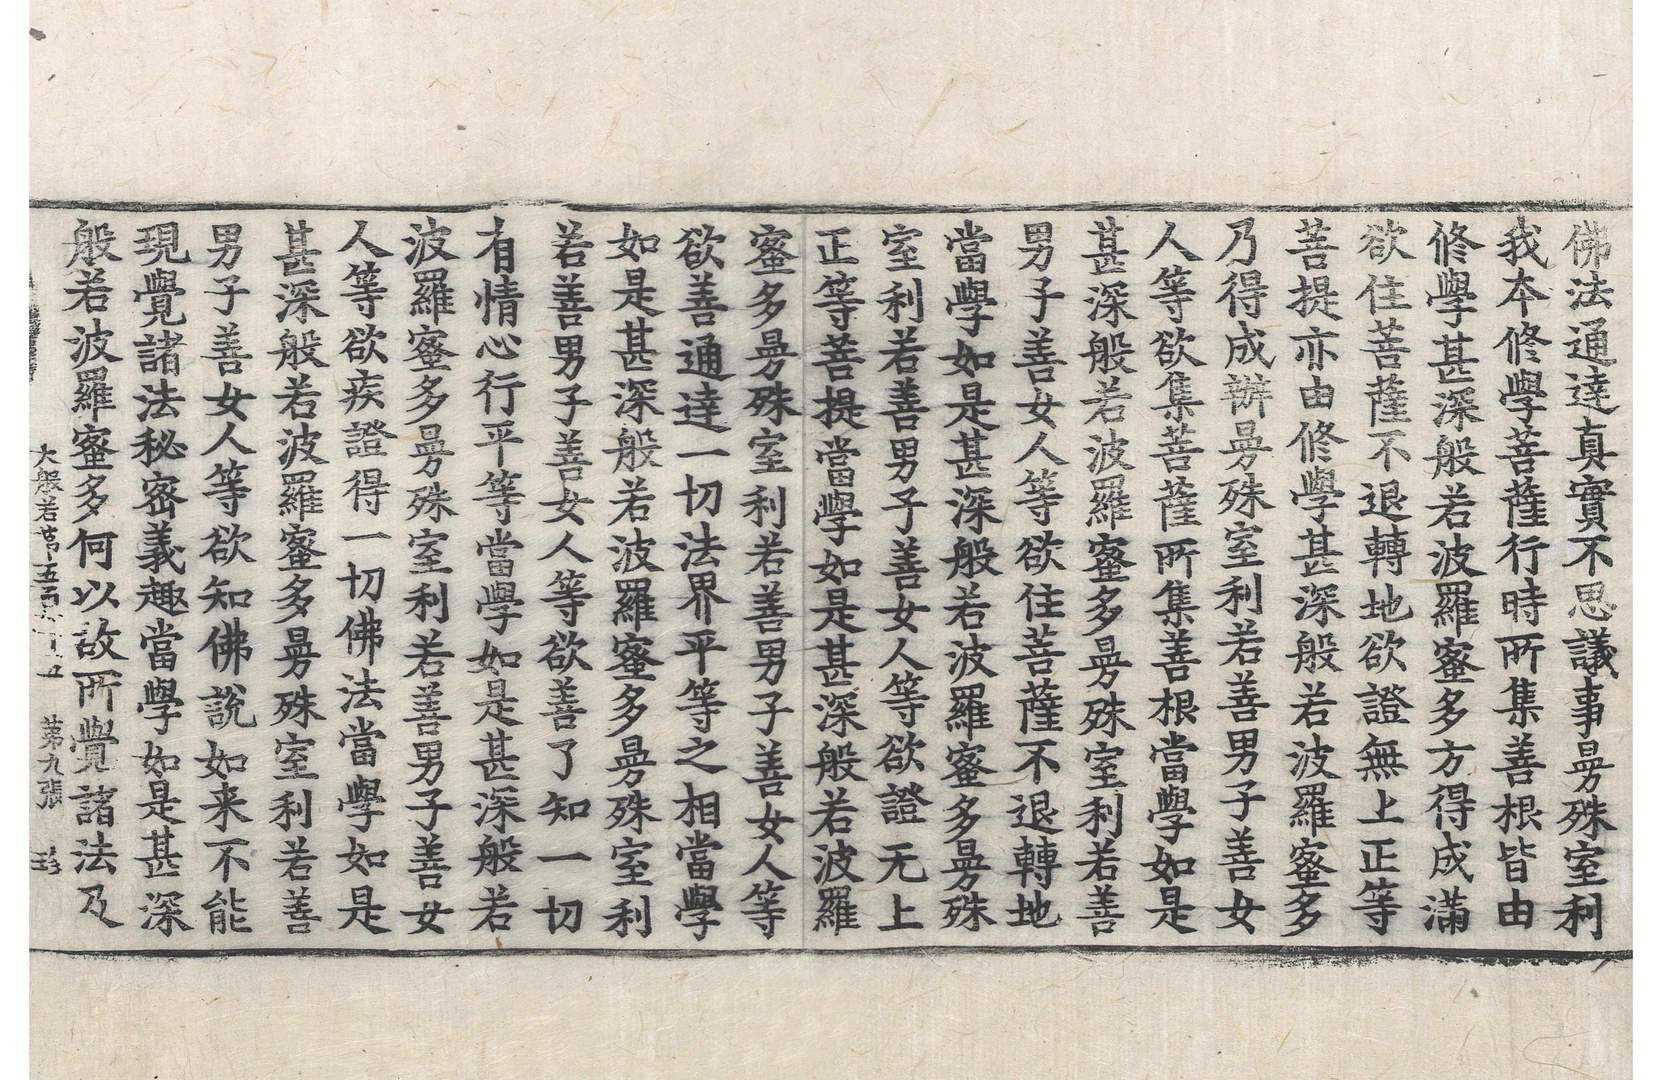 佛法通達真實不思議事曼殊室利
我本修學菩薩行時所集善根皆由
修學甚深般若波羅蜜多方得成滿
欲住菩薩不退轉地欲證無上正等
菩提亦由修學甚深般若波羅蜜多
乃得成辦曼殊室利若善男子善女
人等欲集菩薩所集善根當學如是
甚深般若波羅蜜多曼殊室利若善
男子善女人等欲住菩薩不退轉地
當學如是甚深般若波羅蜜多曼殊
室利若善男子善女人等欲證无上
正等菩提當學如是甚深般若波羅
蜜多曼殊室利若善男子善女人等
欲善通達一切法界平等之相當學
如是甚深般若波羅蜜多曼殊室利
若善男子善女人等欲善了知一切
有情心行平等當學如是甚深般若
波羅蜜多曼殊室利若善男子善女
人等欲疾證得一切佛法當學如是
甚深般若波羅蜜多曼殊室利若善
男子善女人等欲知佛說如来不能
現覺諸法秘密義趣當學如是甚深
般若波羅蜜多何以故所覺諸法及
大般若第五百七十五 第九張